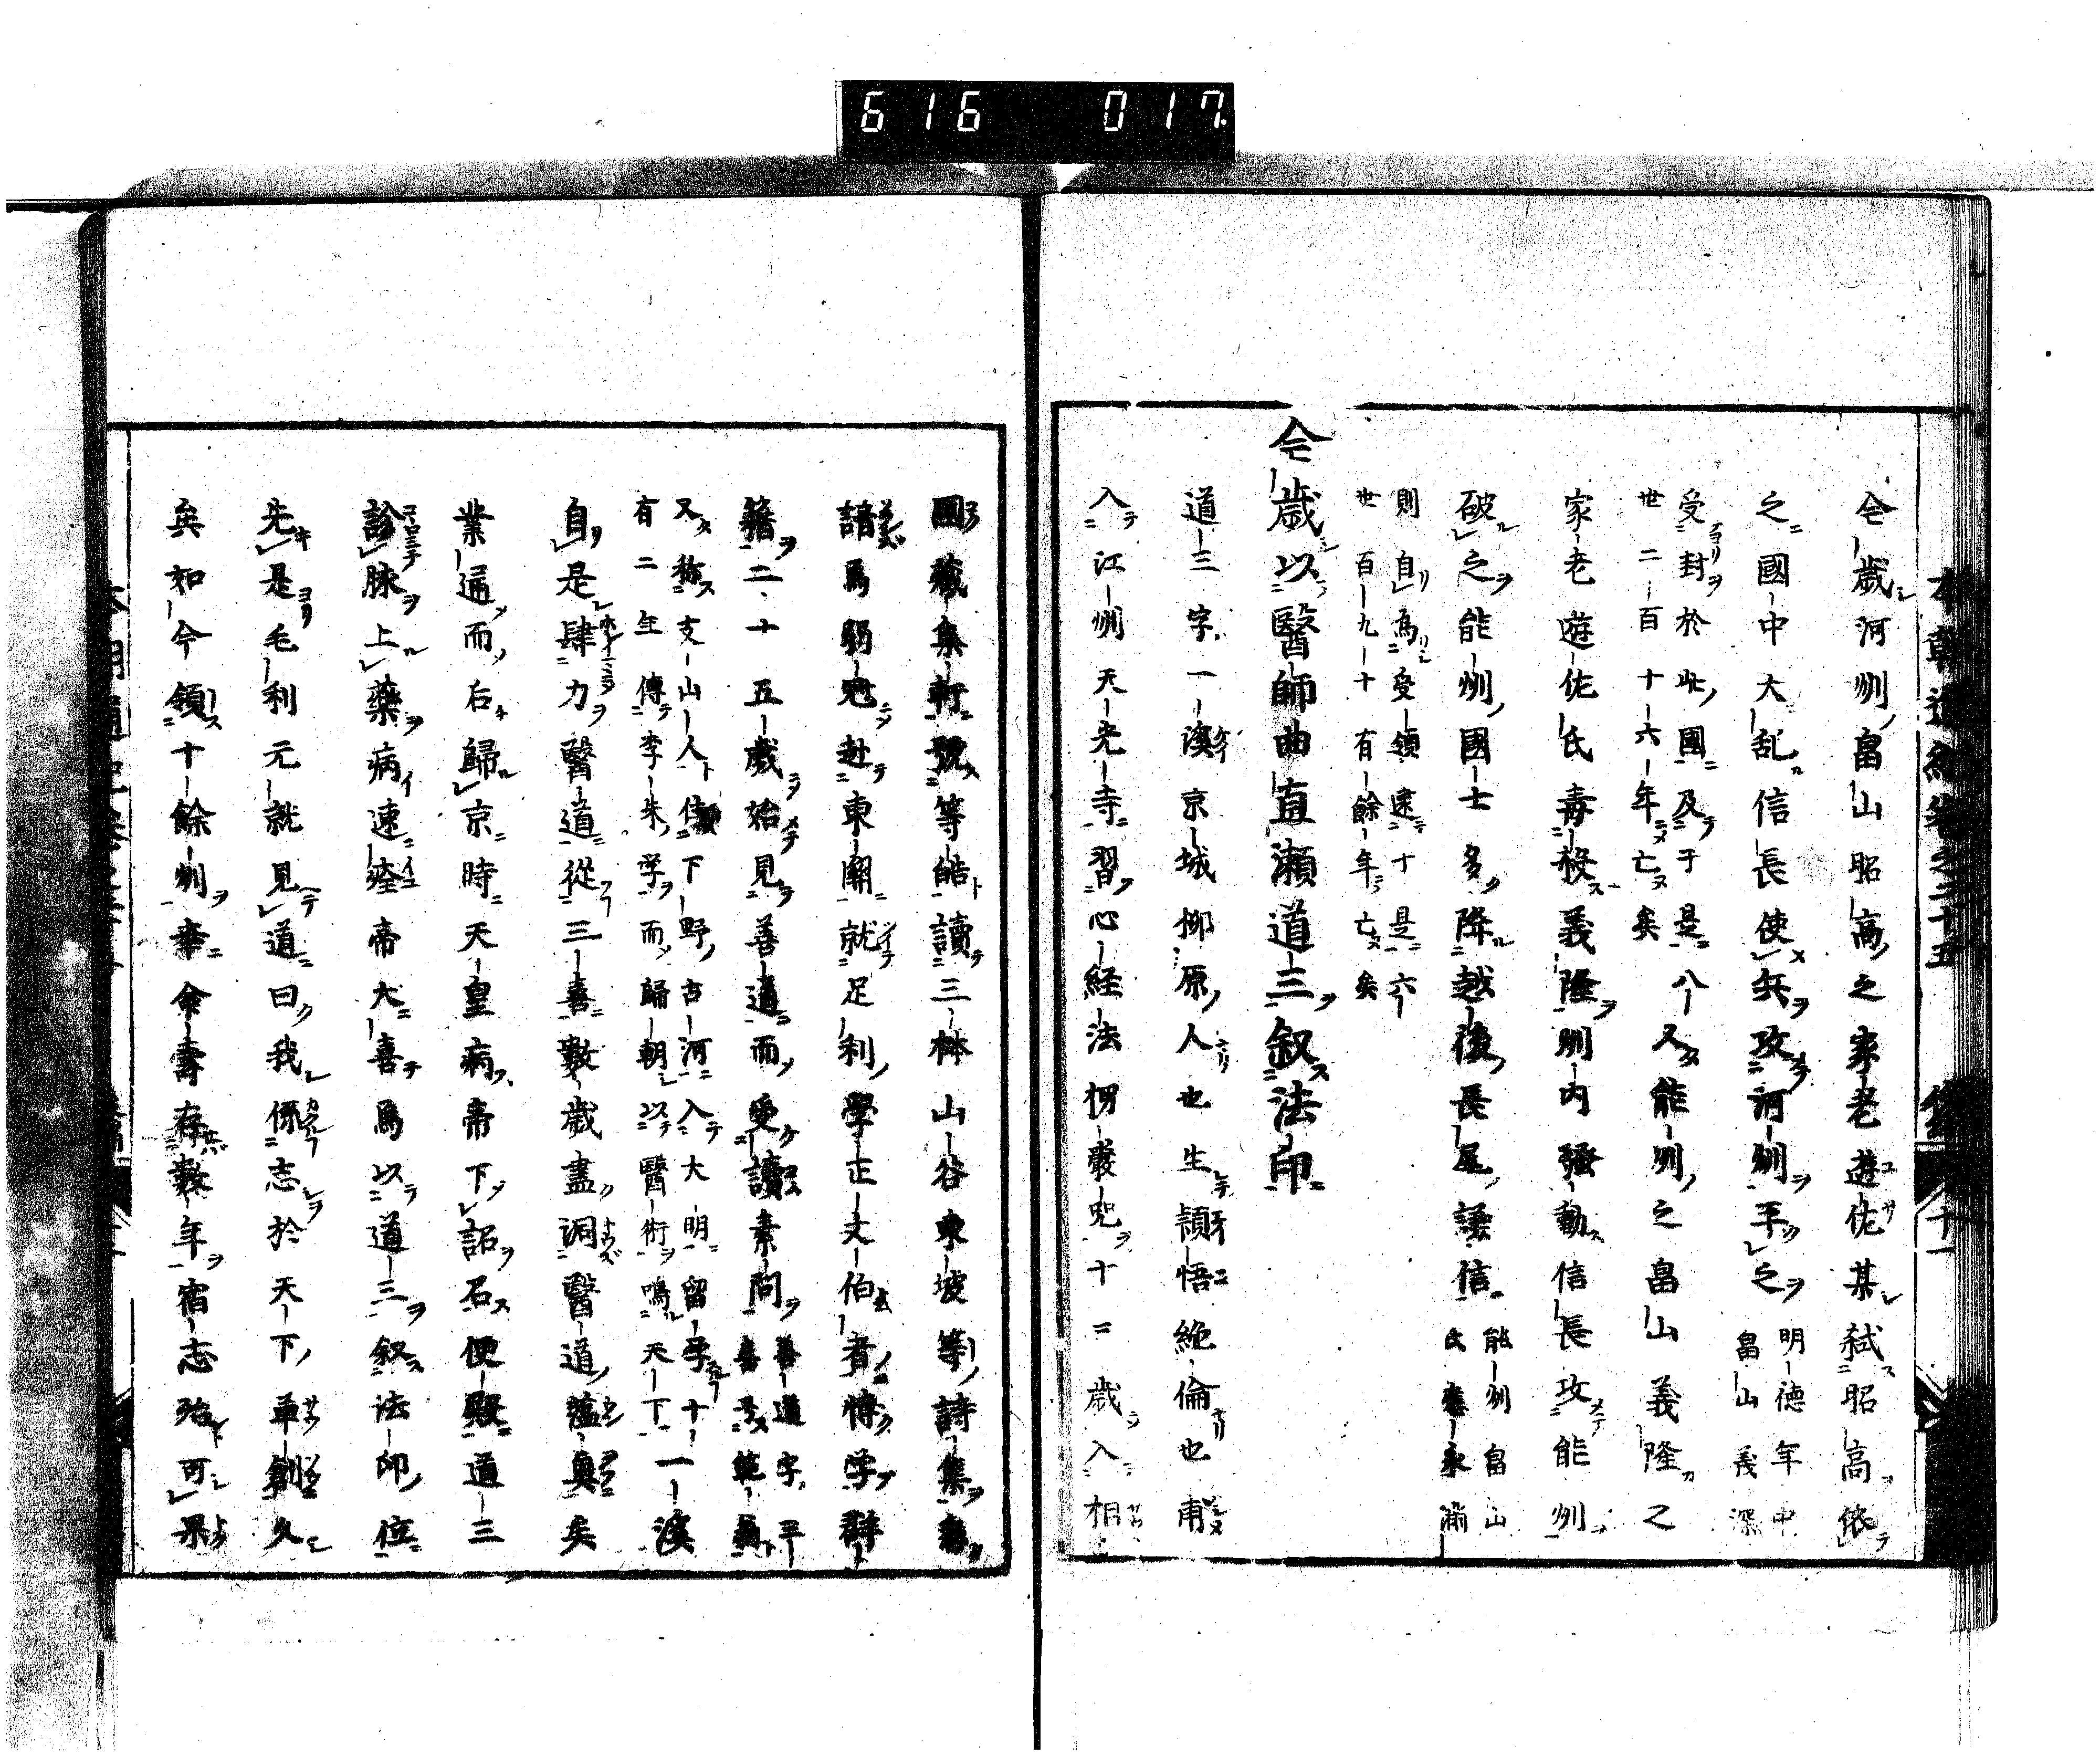 616 017
本朝通紀卷之二十五 十一
仝歲河州畠山昭高之家老遊佐某弑昭高依
之國中大乱信長使兵攻河州平之明德年中
畠山義深
受封於此國及于是八
世二百十六年亡矣又能州之畠山義隆之
家老遊佐氏毒殺義隆州内騷動信長攻能州
破之能州國士多降越後長尾謙信能州畠山
氏 永 滿
則自為受領逮于是六
世百九十有餘年亡矣
仝歲以醫師曲直瀬道三叙法印
道三字一溪京城柳原人也生頴悟絶倫也甫
入江州天光寺習心經法楞嚴咒十二歲入相
國藏集軒號等皓讀三躰山谷東坡等詩集
諳為弱冠赴東關就足利學正文伯者博学群
籍二十五歲始見善道而受讀素問善道字
又称支山人住下野古河入大明留学十一溪
有二年傳李朱学而歸朝以醫術鳴天下
自是肆力醫道從三喜數歲盡洞醫道蘊奥矣
業遍而后歸京時天皇病帝下詔召便殿道三
診脉上藥病速痊帝大喜為以道三叙法印位
先是毛利元就見道曰我係志於天下草創久
矣如今領十餘州幸余壽存數年宿志殆可果